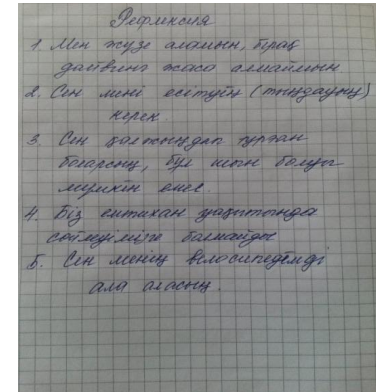 Рефлексия
1. Мен жүзе аламын, бірақ
дайвинг жаса алмаймын
2. Сен мені есітуің (тыңдауың)
керек
3. Сен қалжыңдап тұрған
боларсың, бұл шын болуы
мүмкін емес.
4. Біз емтихан уақытында
сөйлеуімізге болмайды
5. Сен менің велосипедімді
ала аласың.